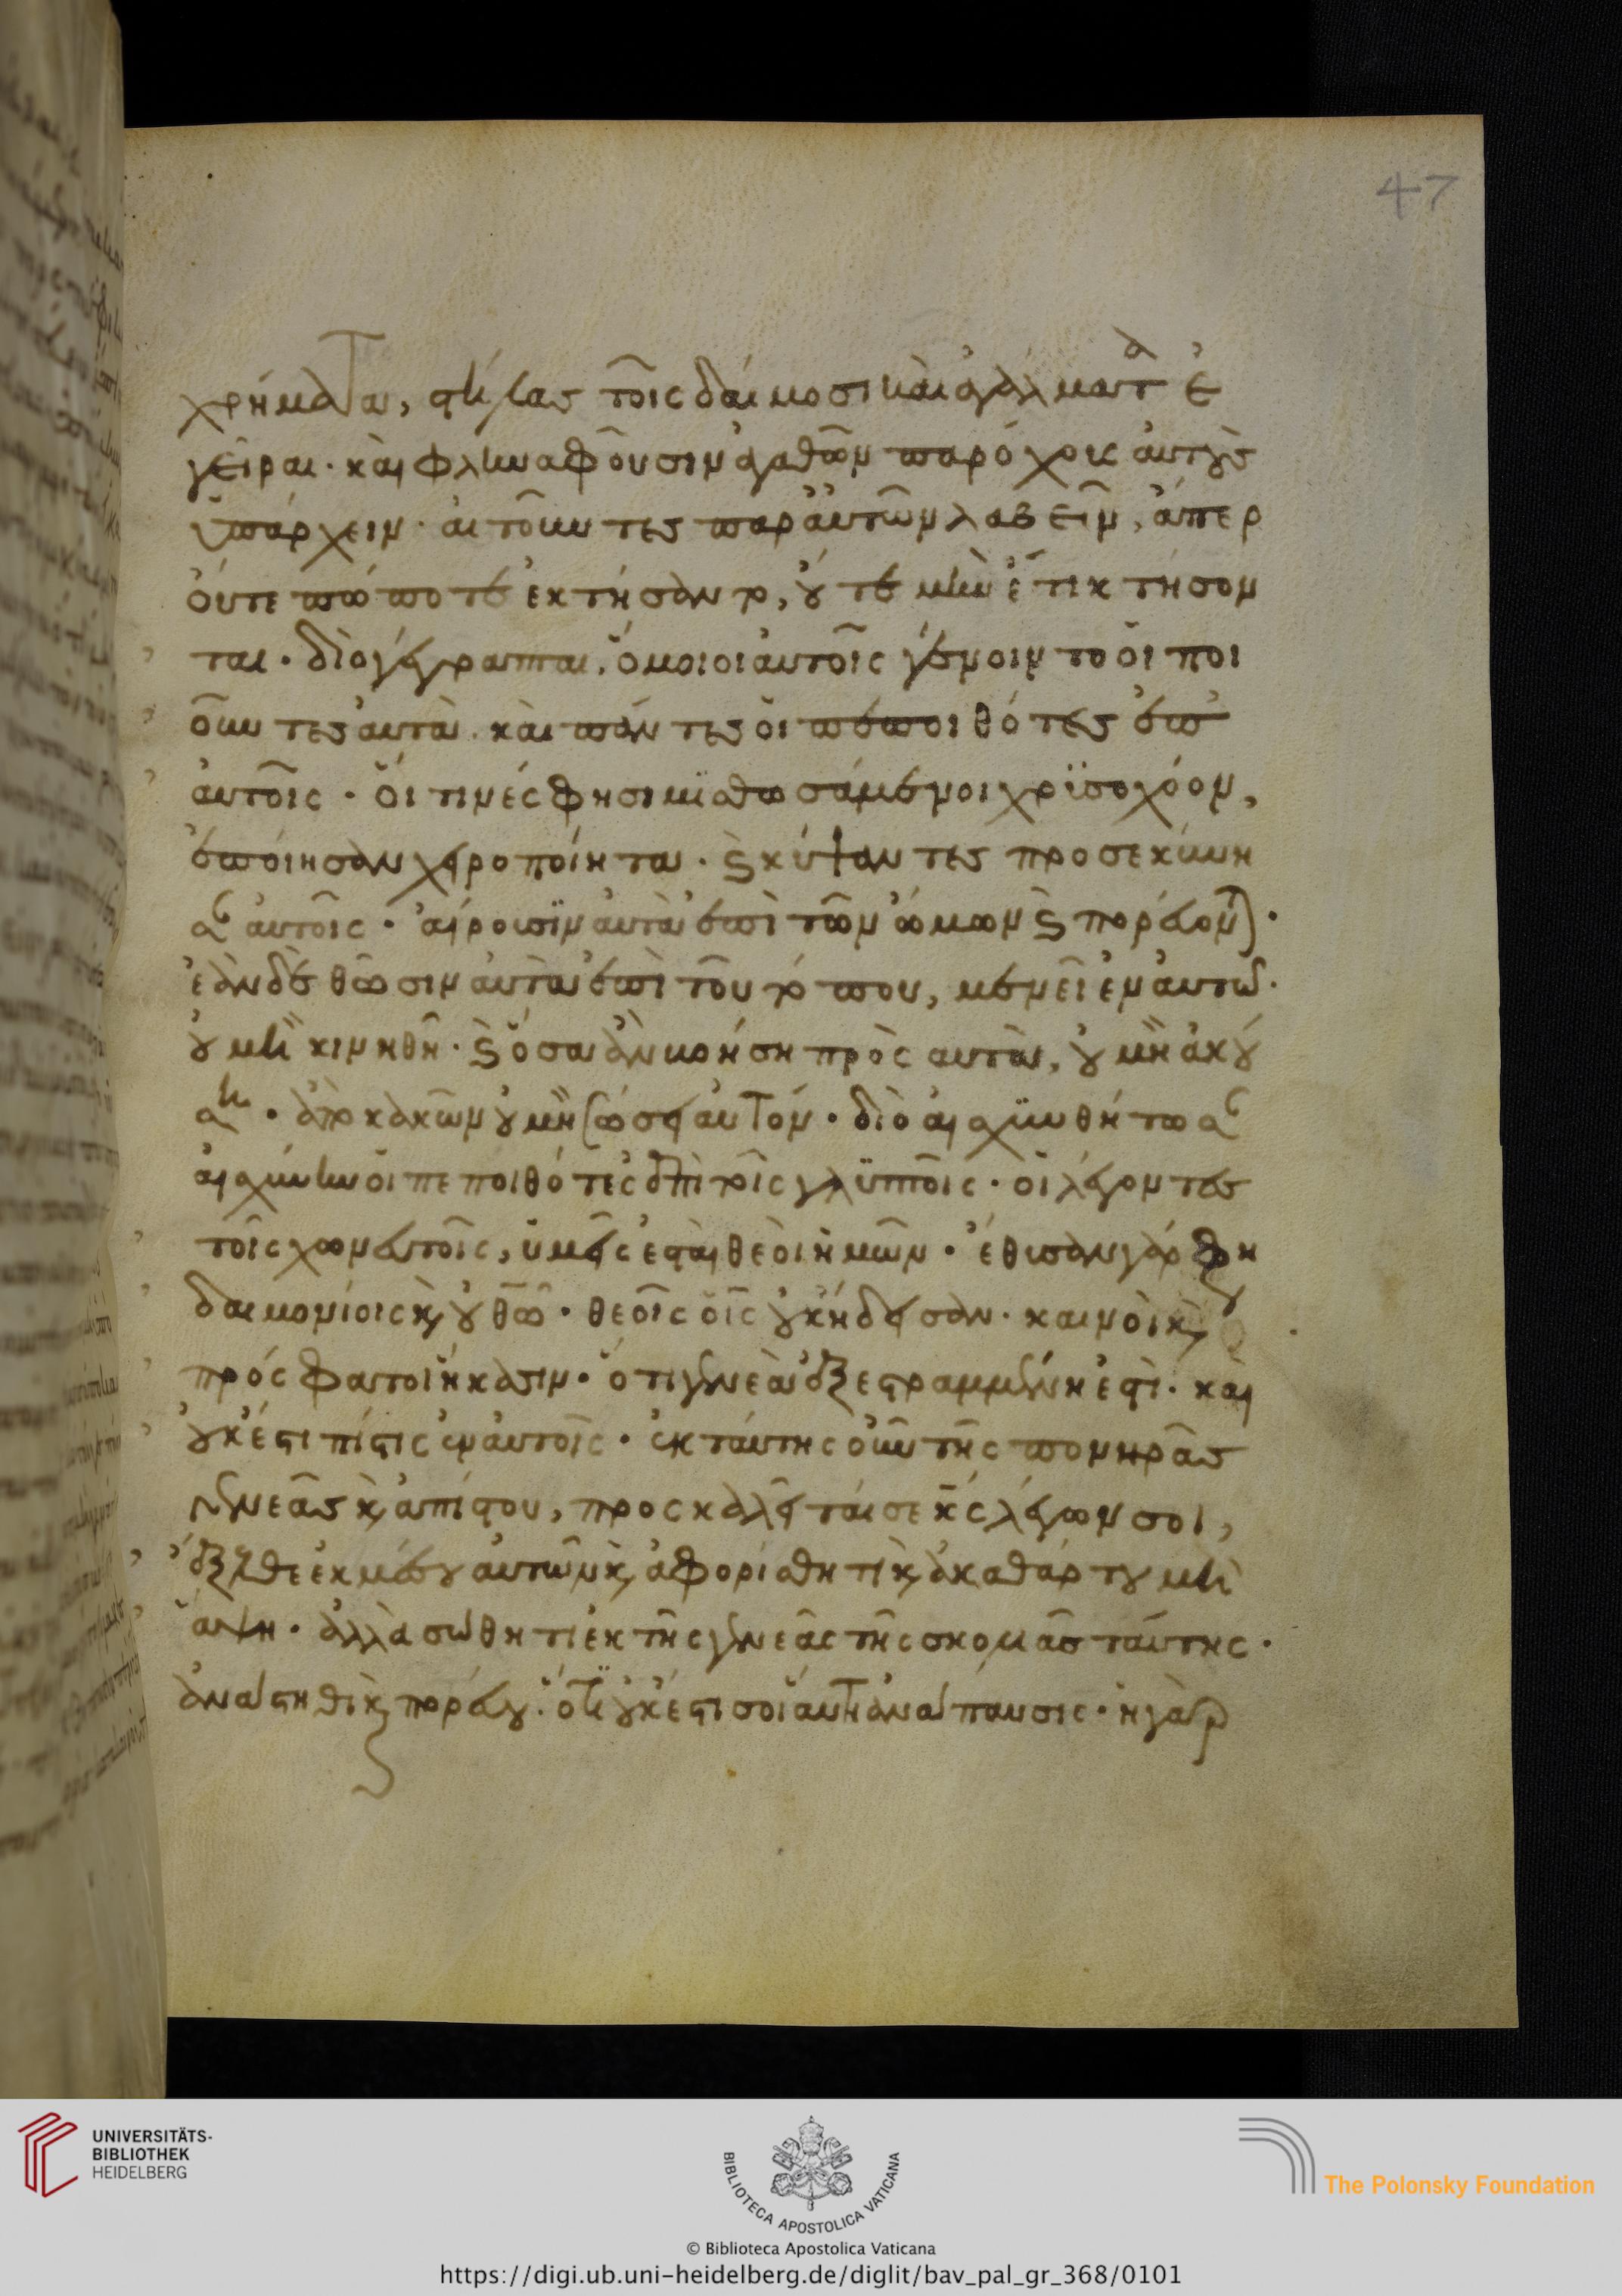 47
χρήματα, στήλας τοῖς δαίμοσι καὶ ἀγάλματα ἐ
γεῖραι· καὶ φληναφοῦσιν ἀγαθῶν παρόχους αὐτοὺς
ὑπάρχειν· αἰτοῦντες παρ' αὐτῶν λαβεῖν, ἅπερ
οὔτε πώποτε ἐκτήσαντο, οὔτε μὴν ἔτι κτήσον
ται· διὸ γέγραπται, ὅμοιοι αὐτοῖς γένοιντο οἱ ποι
οῦντες αὐτὰ καὶ πάντες οἱ πεποιθότες ἐπ'
αὐτοῖς· οἵτινές φησι μισθωσάμενοι χρυσοχόον,
ἐποίησαν χειροποίητα· καὶ κύψαντες προσεκύνη
σαν αὐτοῖς· αἴρουσιν αὐτὰ ἐπὶ τῶν ὤμων καὶ πορεύονται·
ἐὰν δὲ θῶσιν αὐτὰ ἐπὶ τοῦ τόπου, μένει ἐν αὐτῷ·
οὐ μὴ κινηθῇ· καὶ ὅσα ἂν βοήσῃ πρὸς αὐτὰ, οὐ μὴ ἀκού
ση· ἀπὸ κακῶν οὐ μὴ σώσει αὐτόν· διὸ αἰσχυνθήτωσαν
αἰσχύνην οἱ πεποιθότες ἐπὶ τοῖς γλυπτοῖς· οἱ λέγοντες
τοῖς χωνευτοῖς, ὑμεῖς ἐσταὶ θεοὶ ἡμῶν· ἔθυσαν γάρ φη
δαιμονίοις καὶ οὐ θεῷ· θεοῖς οἷς οὐκ ᾔδεισαν· καινοὶ καὶ
πρόσφατοι ἥκασιν· ὅτι γενεὰ ἐξεστραμμένη ἐστὶ· καὶ
οὐκ ἔστι πίστις ἐν αὐτοῖς· ἐκ ταύτης οὖν τῆς πονηρᾶς
γενεᾶς καὶ ἀπίστου, προσκαλεῖταί σε κς λέγων σοι,
ἔξελθε ἐκ μέσου αὐτῶν καὶ ἀφορίσθητι καὶ ἀκαθάρτου μὴ
ἅψῃ· ἀλλὰ σώθητι ἐκ τῆς γενεᾶς τῆς σκολιᾶς ταύτης·
ἀνάστηθι καὶ πορεύου· ὅτι οὐκ ἔστι σοι αὕτη ἀνάπαυσις· ἡ γὰρ
UNIVERSITÄTS-
BIBLIOTHEK
HEIDELBERG
BIBLIOTECA APOSTOLICA VATICANA
© Biblioteca Apostolica Vaticana
The Polonsky Foundation
https://digi.ub.uni-heidelberg.de/diglit/bav_pal_gr_368/0101